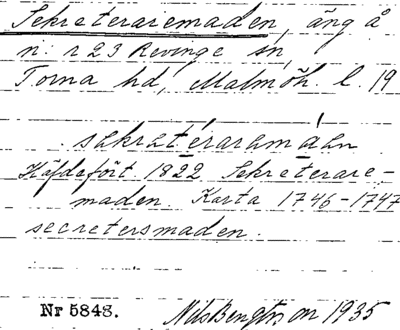 Sekreterariemaden, äng å
n:r 23 Revinge sn,
Torna hd, Malmöh. l. 19
sekretéraremáen
Häfdafört 1822 Sekreterare-
maden. Karta 1746-1747
secretersmaden.
Nr 5848. Nils Bengtsson 1935